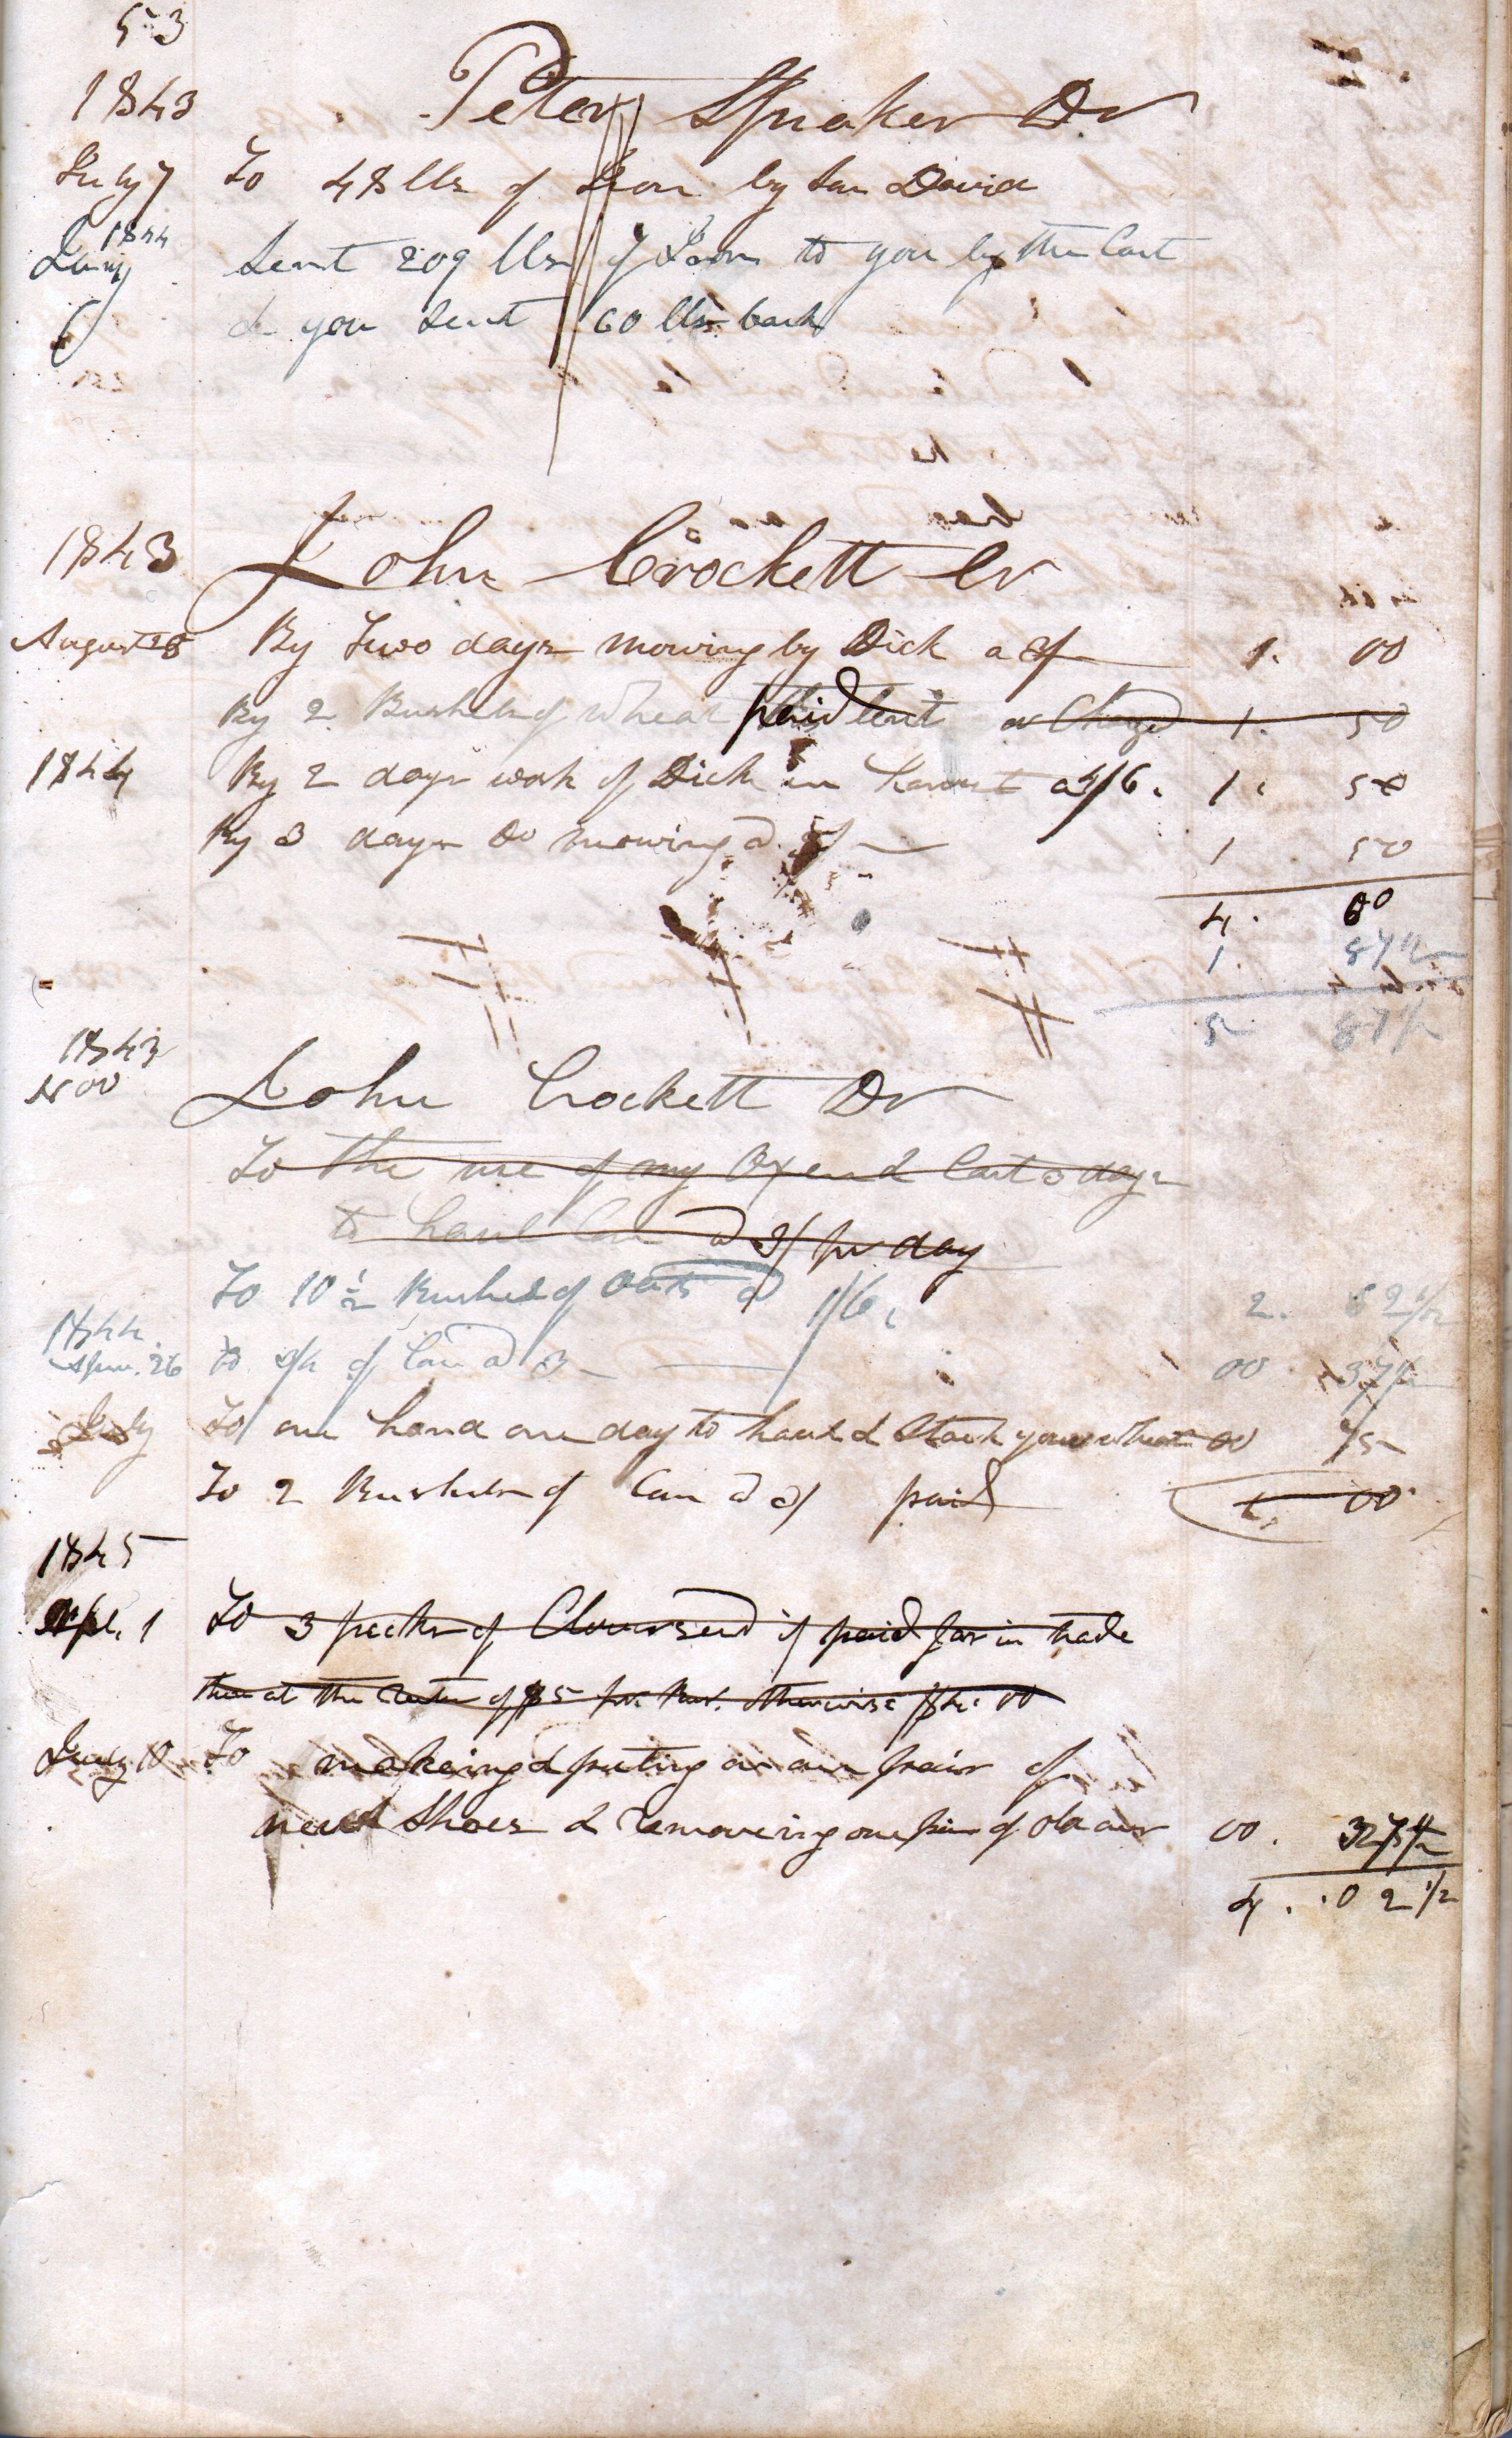 53
1843 Peter Spraker Dr
July 7 To 48 lbs of Iron by son David
1844
July Sent 209 lbs of Iron to you by the Cart
6 & you sent 60 lbs back
1843 John Crockett Cr
August 28 By Two days mowing by Dick a 3/ 1. 00
By 2 Bushels of wheat paid lent or Charged 1. 50
1844 By 2 days work of Dick in harvest a 4/6. 1. 50
By 3 days Do mowing a 3/ 1 50
4. 00
1. 87 1/2
5 87 1/2
1843
Nov John Crockett Dr
To the use of my Ox and Cart 3 days
to haul a 3/ per day
To 10 1/2 Bushels of Oats a 1/6. 2. 62 1/2
1844.
26 To of Corn a 3 00 37 1/2
July To one hand one day to haul & Stack your wheat 00 75
To 2 Bushels of Corn a 3/ paid 1. 00
1845
Apl. 1 To 3 pecks of Cloverseed if paid for in trade
then at the rate of $5 per Bus. otherwise $4.00
July 10 To makeing & puting on one pair of
new Shoes & removeing one pair of old ones 00. 37 1/2
4. 02 1/2